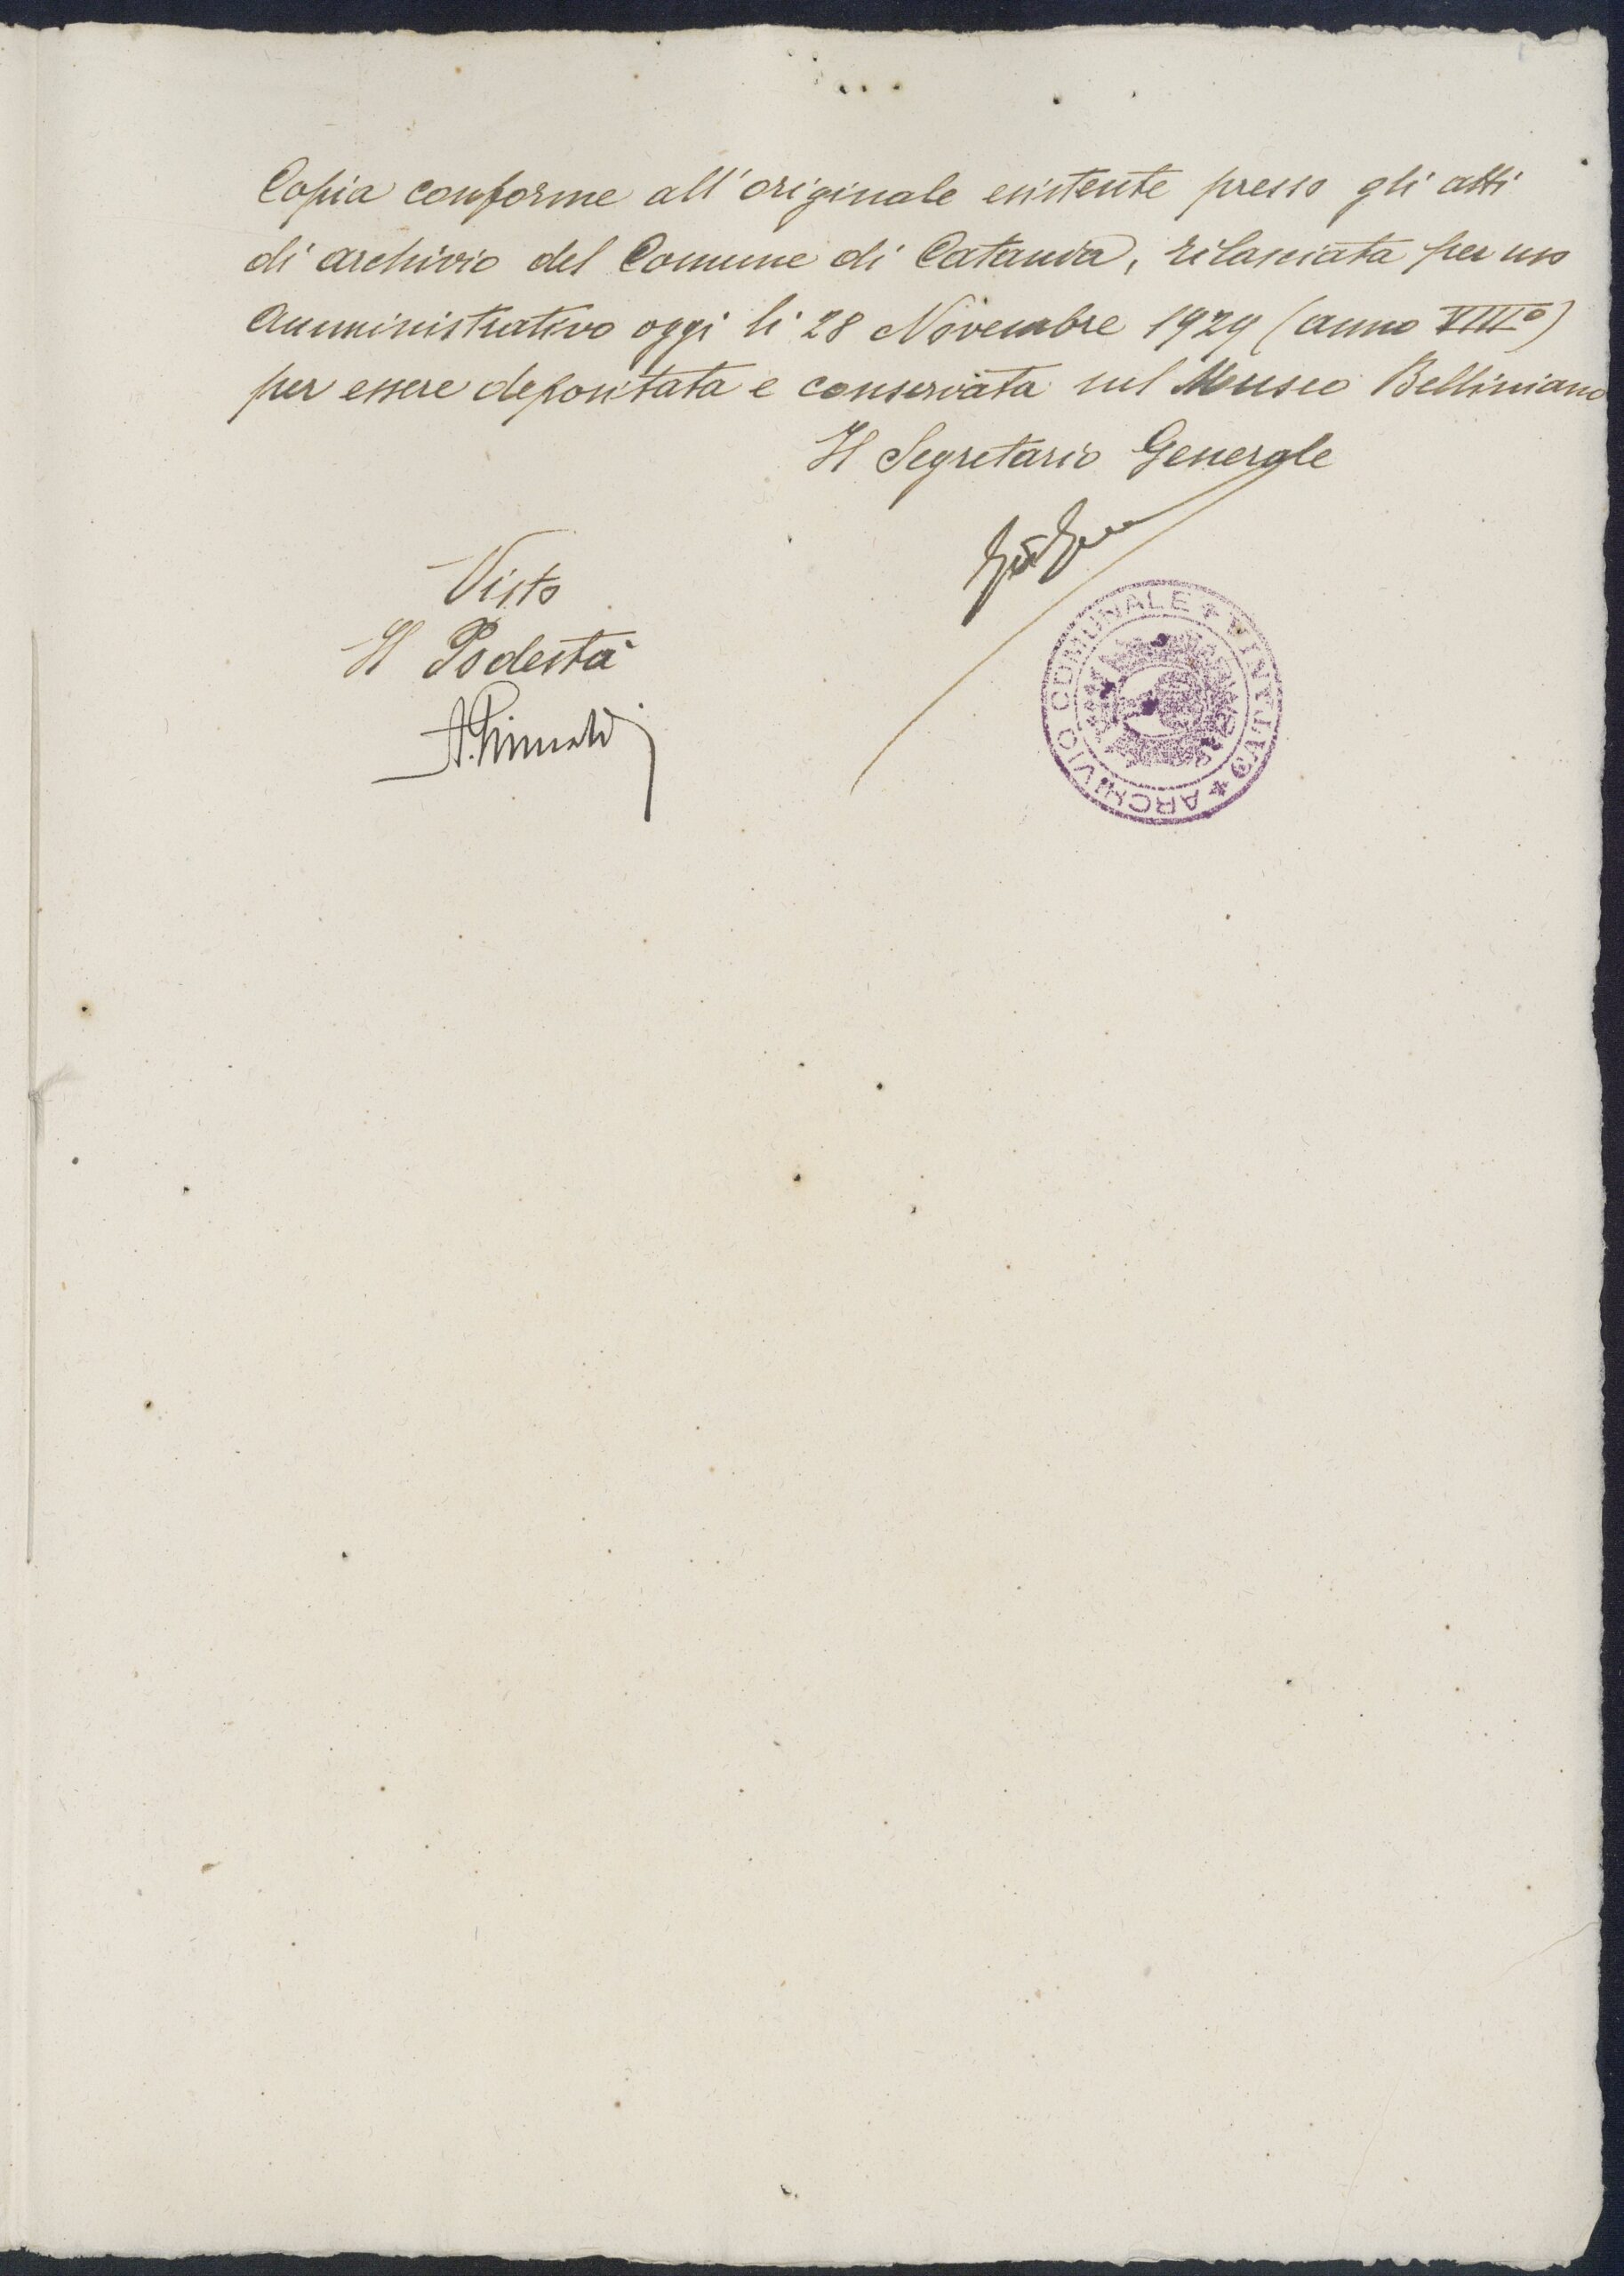 Copia conforme all'originale esistente presso gli atti
di archivio del Comune di Catania, rilasciata per uso
Amministrativo oggi lì 28 Novembre 1929 (anno VIII°)
per essere depositata e conservata sul Museo Belliniano
Il Segretario Generale
Visto
Il Podestà
ARCHIVIO COMUNALE